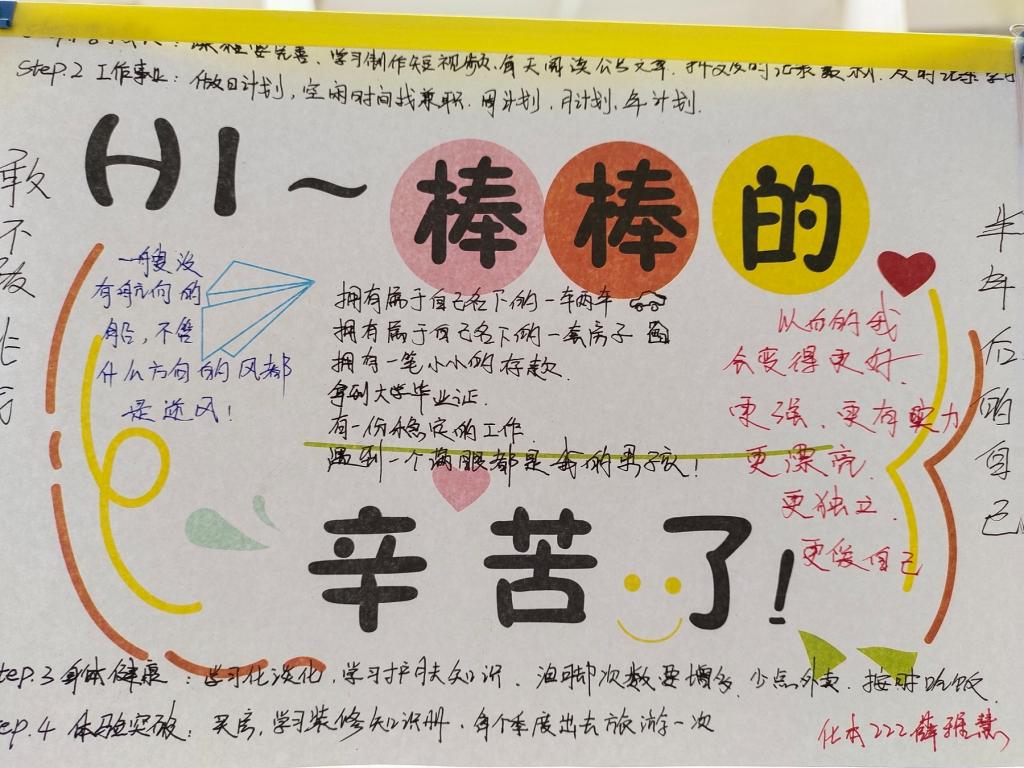 课程要完善、学习制作短视频、每天阅读公号文章.
Step.2 工作事业：做日计划，空闲时间找兼职.周计划，月计划，年计划.
HI～棒棒的
一艘没
有航向的
船，不管
什么方向的风都
是逆风！
拥有属于自己名下的一车两车
拥有属于自己名下的一套房子
拥有一笔小小的存款.
拿到大学毕业证.
有一份稳定的工作.
遇到一个满眼都是我的男孩！
以后的我
会变得更好
更强、更有实力
更漂亮
更独立.
更像自己
半
年
后
的
自
己
辛苦了！
tep.3 身体健康：学习化淡化，学习护肤知识.泡脚次数要增多.少点外卖.按时吃饭
ep.4 体验突破：买房，学习装修知识册.每个季度出去旅游一次
化本222薛雅慧